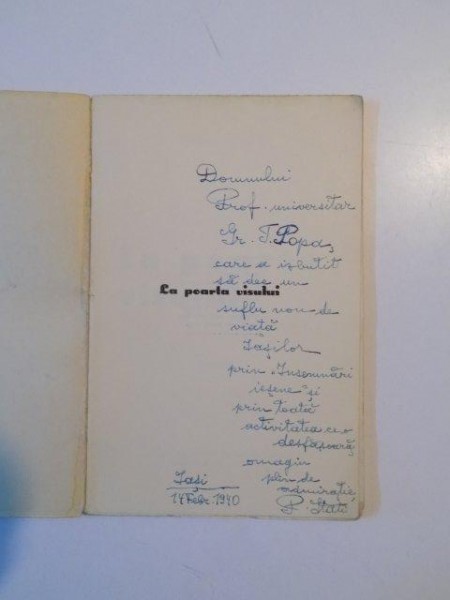 Domnului
Prof. universitar
Gr. T. Popa,
care a izbutit
să dee un
La poarta visului
suflu nou de
viață
Iașilor
prin „Însemnări
ieșene" și
prin toată
activitatea ce o
desfășoară,
omagiu
plin de
admirație,
Iași
14 Febr. 1940